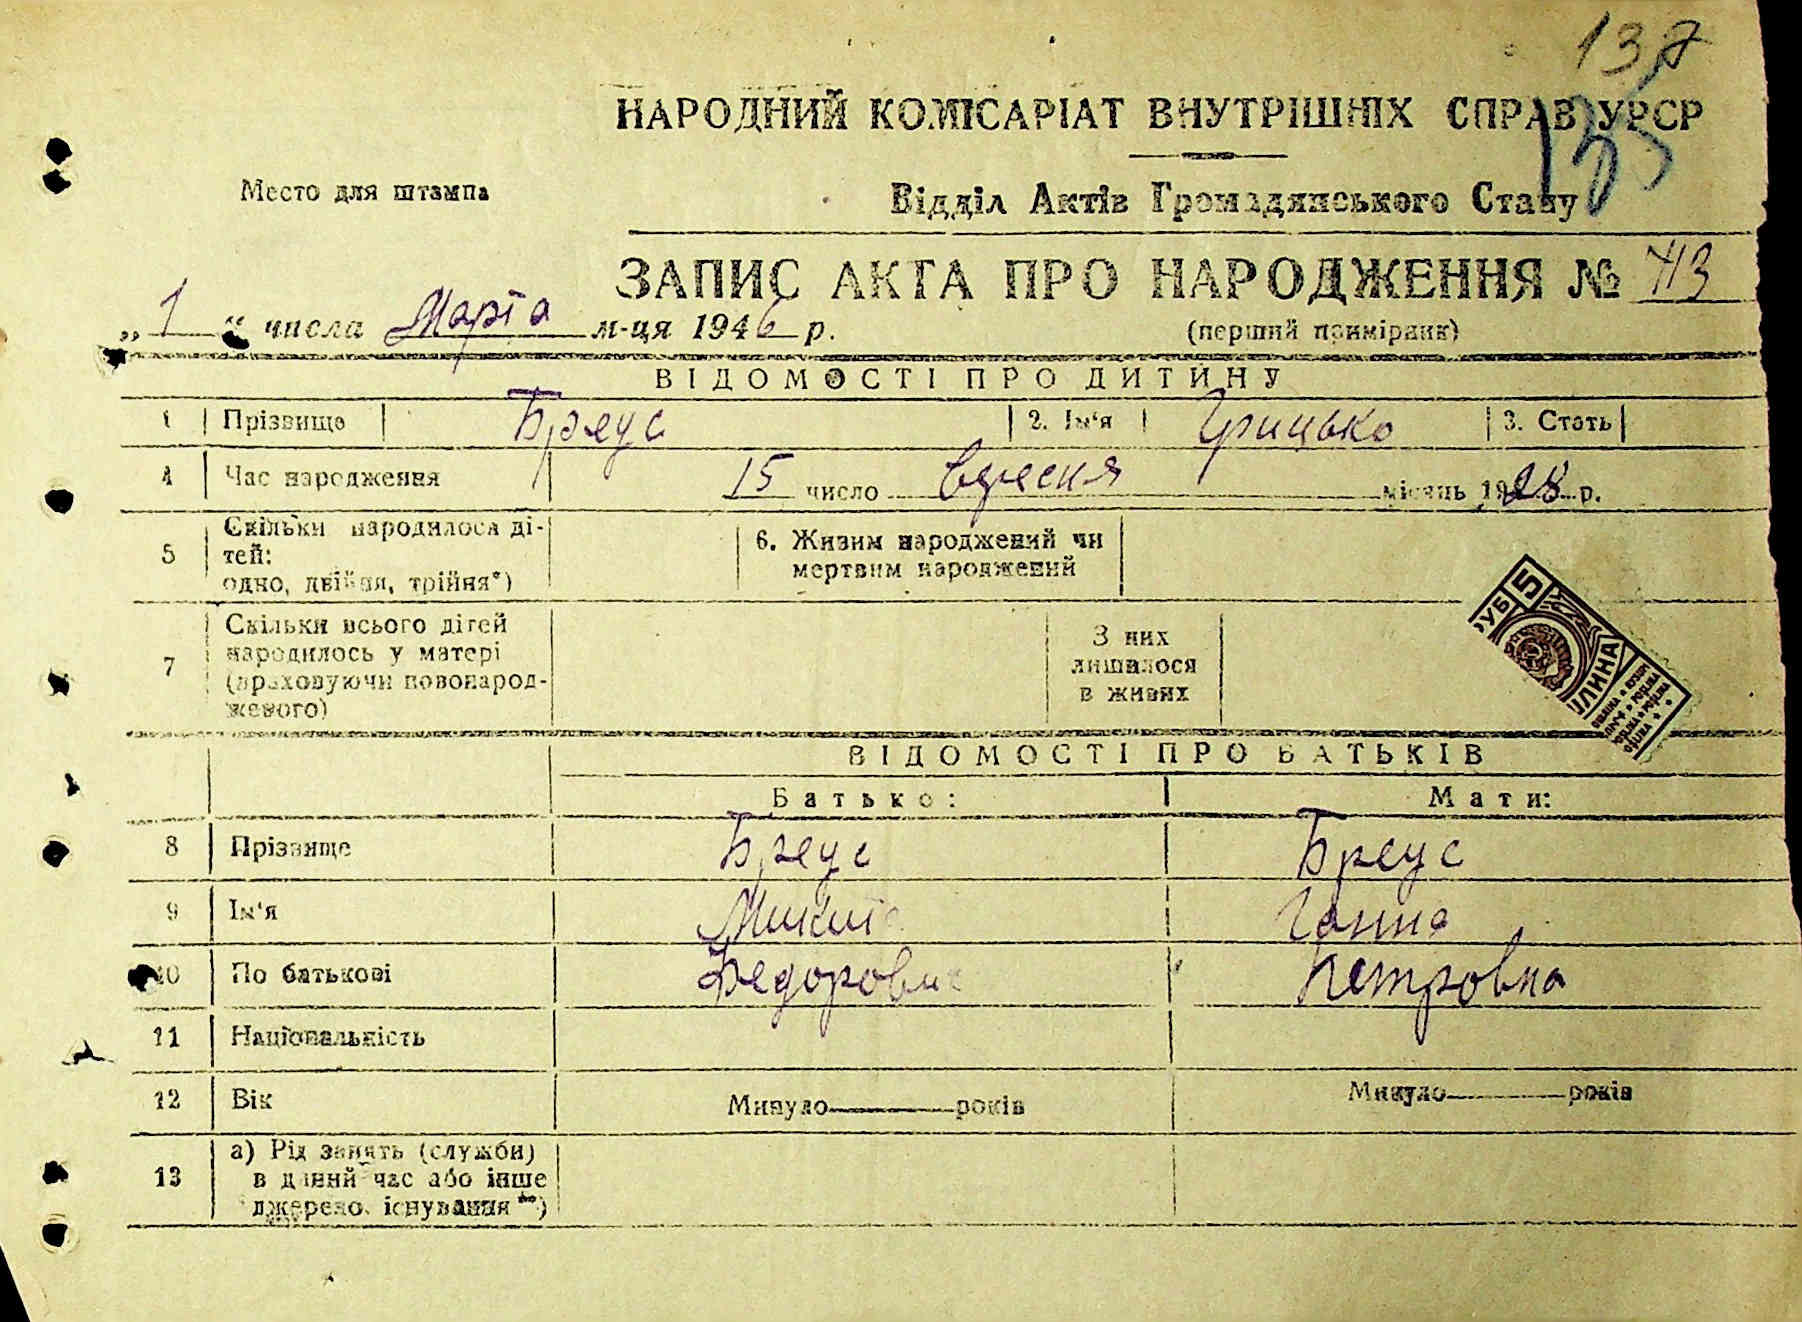 137
135
НАРОДНИЙ КОМІСАРІАТ ВНУТРІШНІХ СПРАВ УРСР
Место для штампа
Відділ Актів Громадянського Стану
ЗАПИС АКТА ПРО НАРОДЖЕННЯ № 713
„ 1 “ числа Марта м-ця 1946 р.
(перший примірник)
ВІДОМОСТІ ПРО ДИТИНУ
1 Прізвище Бреус 2. Ім'я Грицько 3. Стать
4 Час народження 15 число вересня місяць 1928 р.
5 Скільки народилося ді-
тей:
одно, двійня, трійня*)
6. Живим народжений чи
мертвим народжений
7 Скільки всього дітей
народилось у матері
(враховуючи новонарод-
женого)
З них
лишилося
в живих
РУБ 5
ВІДОМОСТІ ПРО БАТЬКІВ
Батько: Мати:
8 Прізвище Бреус Бреус
9 Ім'я Микита Ганна
10 По батькові Федорович Петровна
11 Національність
12 Вік Минуло років Минуло років
13 а) Рід занять (служби)
в даний час або інше
джерело існування **)